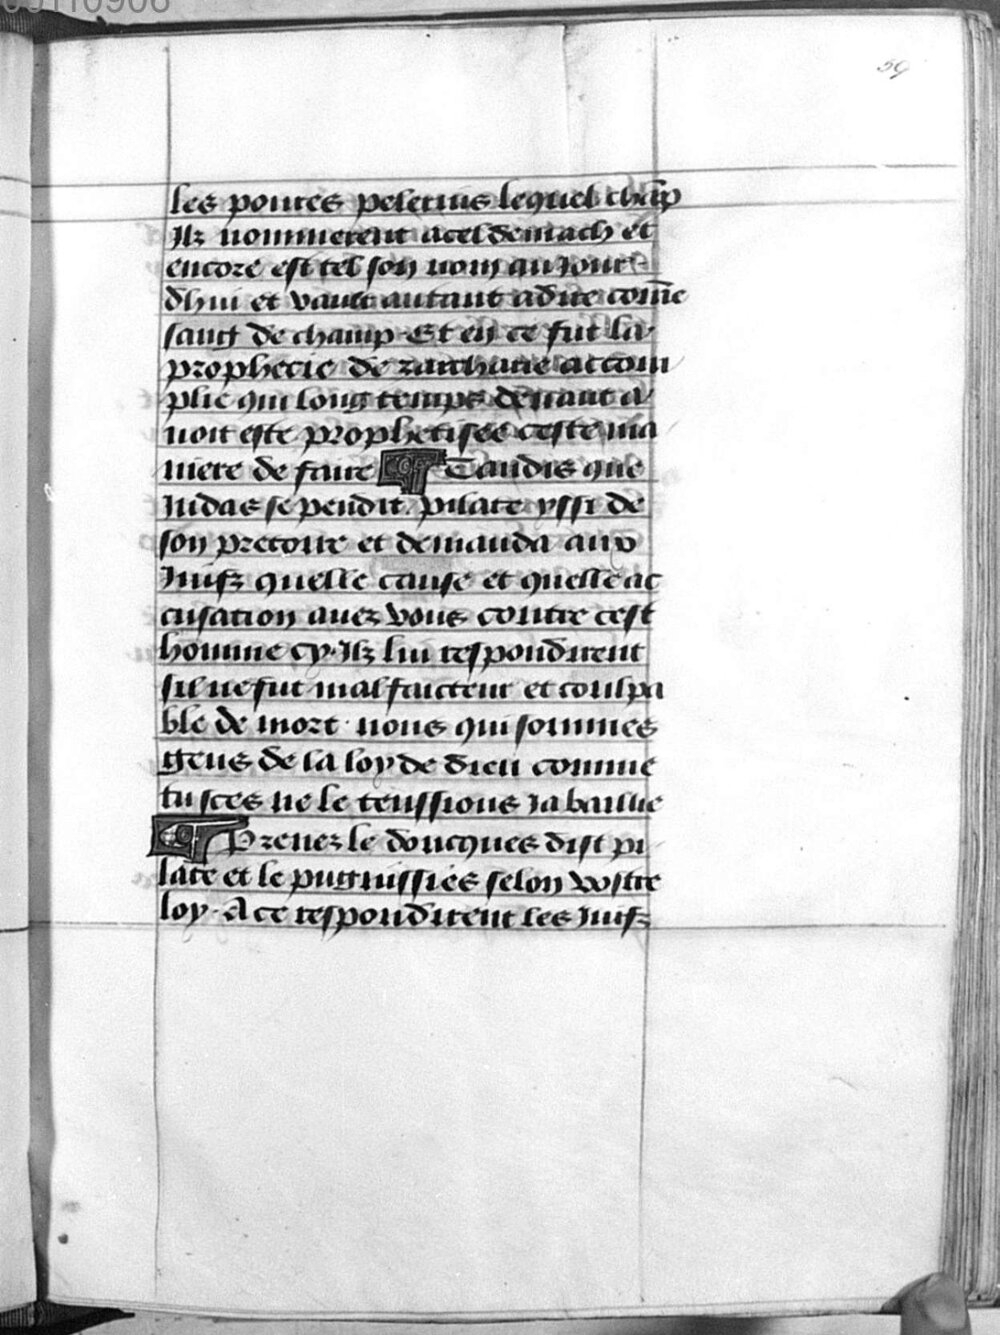 00110908
59
les poures pelerins lequel chāp
Ilz nommerent acel demach et
encore est tel son nom au Jour-
dhui et vault autant adire cōme
sang de champ. Et en ce fut la
prophecie de zacharie accom
plie qui long temps deuant a
uoit este prophetisee ceste ma
niere de faire ¶ Tandis que
Iudas se pendit. pilate yssi de
son pretoire et demanda aux
Iuifz quelle cause et quelle ac
cusation auez vous contre cest
homme cy. Ilz lui respondirent
sil ne fut malfaicteur et coulpa
ble de mort. nous qui sommes
gens de la loy de dieu comme
tu sces ne le teussions Ja baillie
¶ Prenez le doncques dist pi
late et le pugnissies selon vostre
loy. A ce respondirent les Juifz